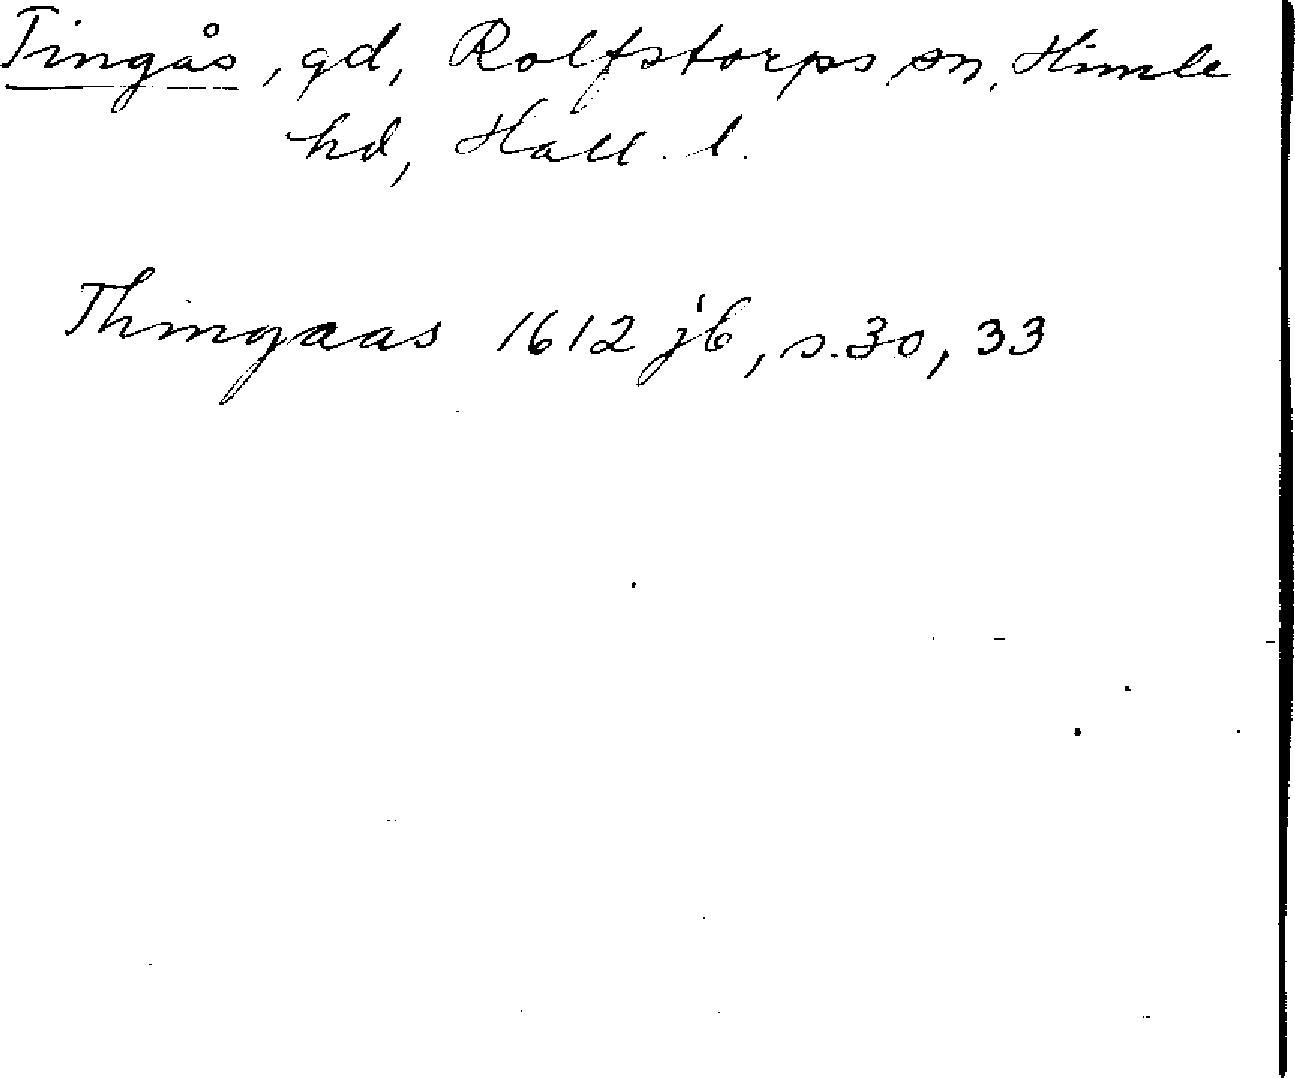 Tingås, gd, Rolfstorps sn, Himle
hd, Hall. l.
Thingaas 1612 jb, s. 30, 33